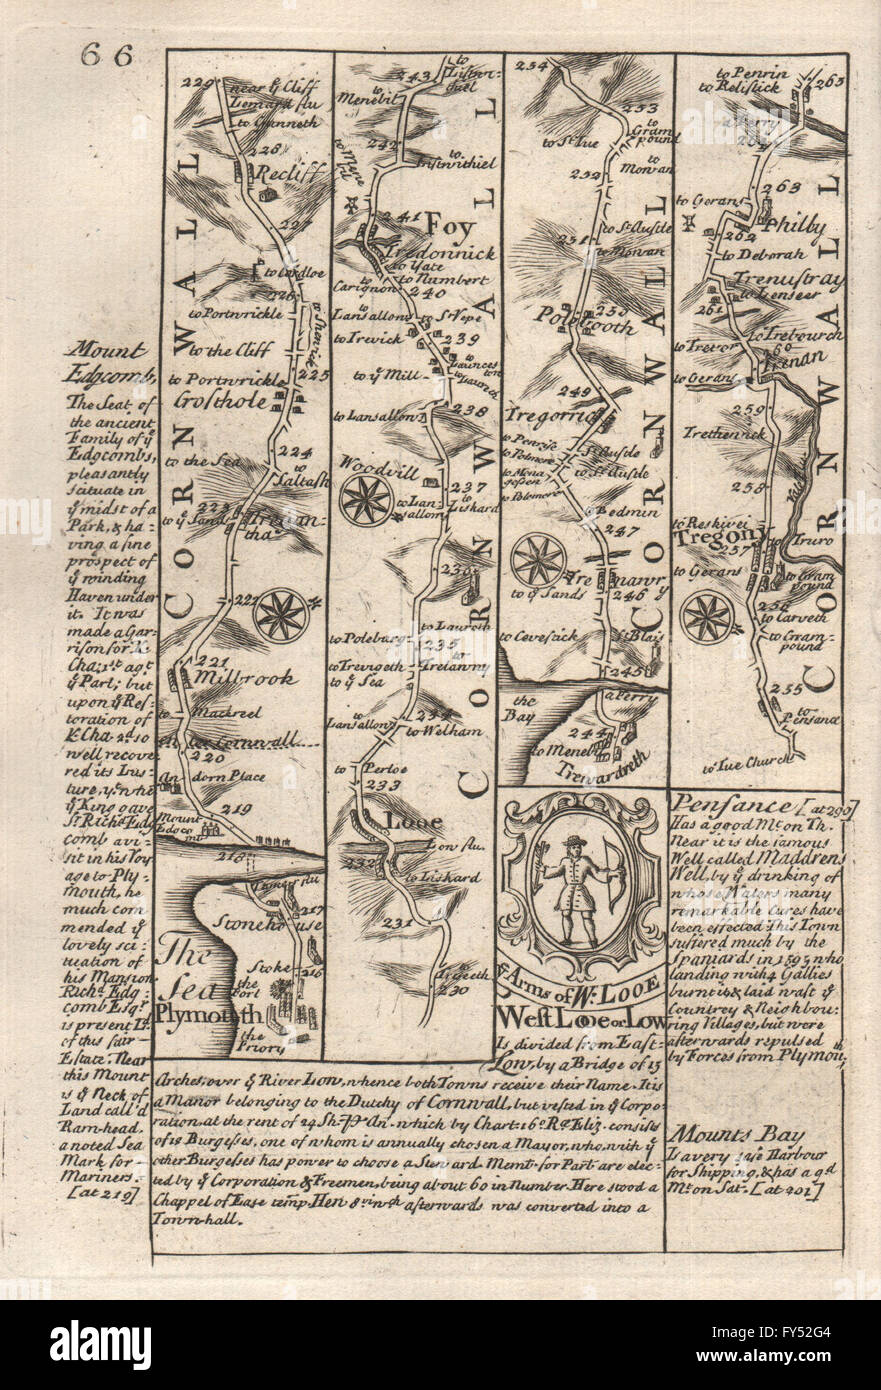 66
Mount
Edgcomb
The Seat of
the ancient
Family of yᵉ
Edgcombs,
pleasantly
scituate in
yᵉ midst of a
Park, & ha-
ving a fine
prospect of
yᵉ winding
Haven under
it. It was
made a Gar-
rison for K.
Cha: 1ˢᵗ agᵗ
yᵉ Parl; but
upon yᵉ Res-
toration of
K. Cha. 2ᵈ so
well recove
red its Lus-
ture, yᵗ whⁿ
yᵉ King gave
Sʳ Richᵈ Edg
comb a vi-
sit in his Voy
age to Ply-
mouth, he
much com
mended yᵉ
lovely sci-
tuation of
his Mansion
Richᵈ Edg-
comb Esqʳ
is present Lᵈ
of this fair
Estate. Near
this Mount
is yᵉ Neck of
Land call'd
Ram-head.
a noted Sea
Mark for
Mariners.
[at 219]
CORNWALL
229
near yᵉ Cliff
to Ganneth
228
Recliff
227
to Cordloe
226
to Portwrickle
to the Cliff
to Portwrickle
225
Crofthole
224
to the Sea
to
Saltash
223
to yᵉ Sand
222
221
Milbrook
to
Mackreel
Enter Cornwall
220
Mount
Edgcomb
219
218
217
Stonehouse
Stoke
216
the
Fort
The
Sea
Plymouth
the
Priory
CORNWALL
243
to
Listwi-
thiel
to
Menebit
242
to
Listwithiel
241
Foy
Tredonnick
to Yate
to Numbert
240
to
Carignon
to
Lansallon
to St Vepe
to Trevick
239
to yᵉ Mill
to Lansallon
238
Woodvill
237
to Lan-
sallon
to
Liskard
236
to Poleburg
to Laureth
235
to Trevigeth
to
Trelanny
to yᵉ Sea
234
to
Lansallon
to Welham
to
Perloe
233
Looe
Low flu.
232
to Liskard
231
230
CORNWALL
254
253
to
Gram
pound
to St Tue
252
to
Morvan
to St Austle
251
to Morvan
250
Polstooth
249
Tregorrick
to Penrise
to Polmore
to St Austle
to Mena
gessen
to St Austle
to Polomore
Bedmin
247
Tremanvry
to yᵉ Sands
246
to Cevestick
St Blais
245
the
Bay
a Ferry
244
to Meneb
Trewardreth
CORNWALL
to Penrin
to Relistick
265
a Ferry
264
263
to Gerans
Philby
262
to Deborah
Trenustray
to Lenseer
261
to Trebourch
to Trevor
260
Trenan
to Gerans
259
Trethennick
258
to Reskivei
Tregony
257
to
Truro
to Gerans
to Gram
pound
256
to Carveth
to Gram-
pound
255
to
Pensance
to Tue Church
yᵉ Arms of W. LOOE
West Looe or Low
Is divided from East-
Low, by a Bridge of 15
Arches, over yᵉ River Low, whence both Towns receive their Name. It is
a Manor belonging to the Dutchy of Cornwall, but vested in yᵉ Corpo-
ration, at the rent of 24 Sh. pʳ An. which by Chart: 16º Rᵉ Eliz. consists
of 12 Burgesses, one of whom is annually chosen a Mayor, who, with yᵉ
other Burgesses has power to choose a Steward. Membʳˢ for Part are elec-
ted by yᵉ Corporation & Freemen, being about 60 in Number. Here stood a
Chappel of Ease temp. Hen 8ᵗʰ wᶜʰ afterwards was converted into a
Town-hall.
Pensance [at 290]
Has a good Mᵗ on Th.
Near it is the famous
Well called Maddrens
Well, by yᵉ drinking of
whose Waters many
remarkable Cures have
been effected. This Town
suffered much by the
Spaniards in 1595 who
landing with 4 Gallies
burnt it & laid wast yᵉ
Countrey & Neighbou-
ring Villages, but were
afterwards repulsed
by Forces from Plymouth
Mounts Bay
Is a very safe Harbour
for Shipping, & has a gᵈ
Mᵗ on Satʳ. [at 201]
alamy
Image ID: FY52G4
www.alamy.com